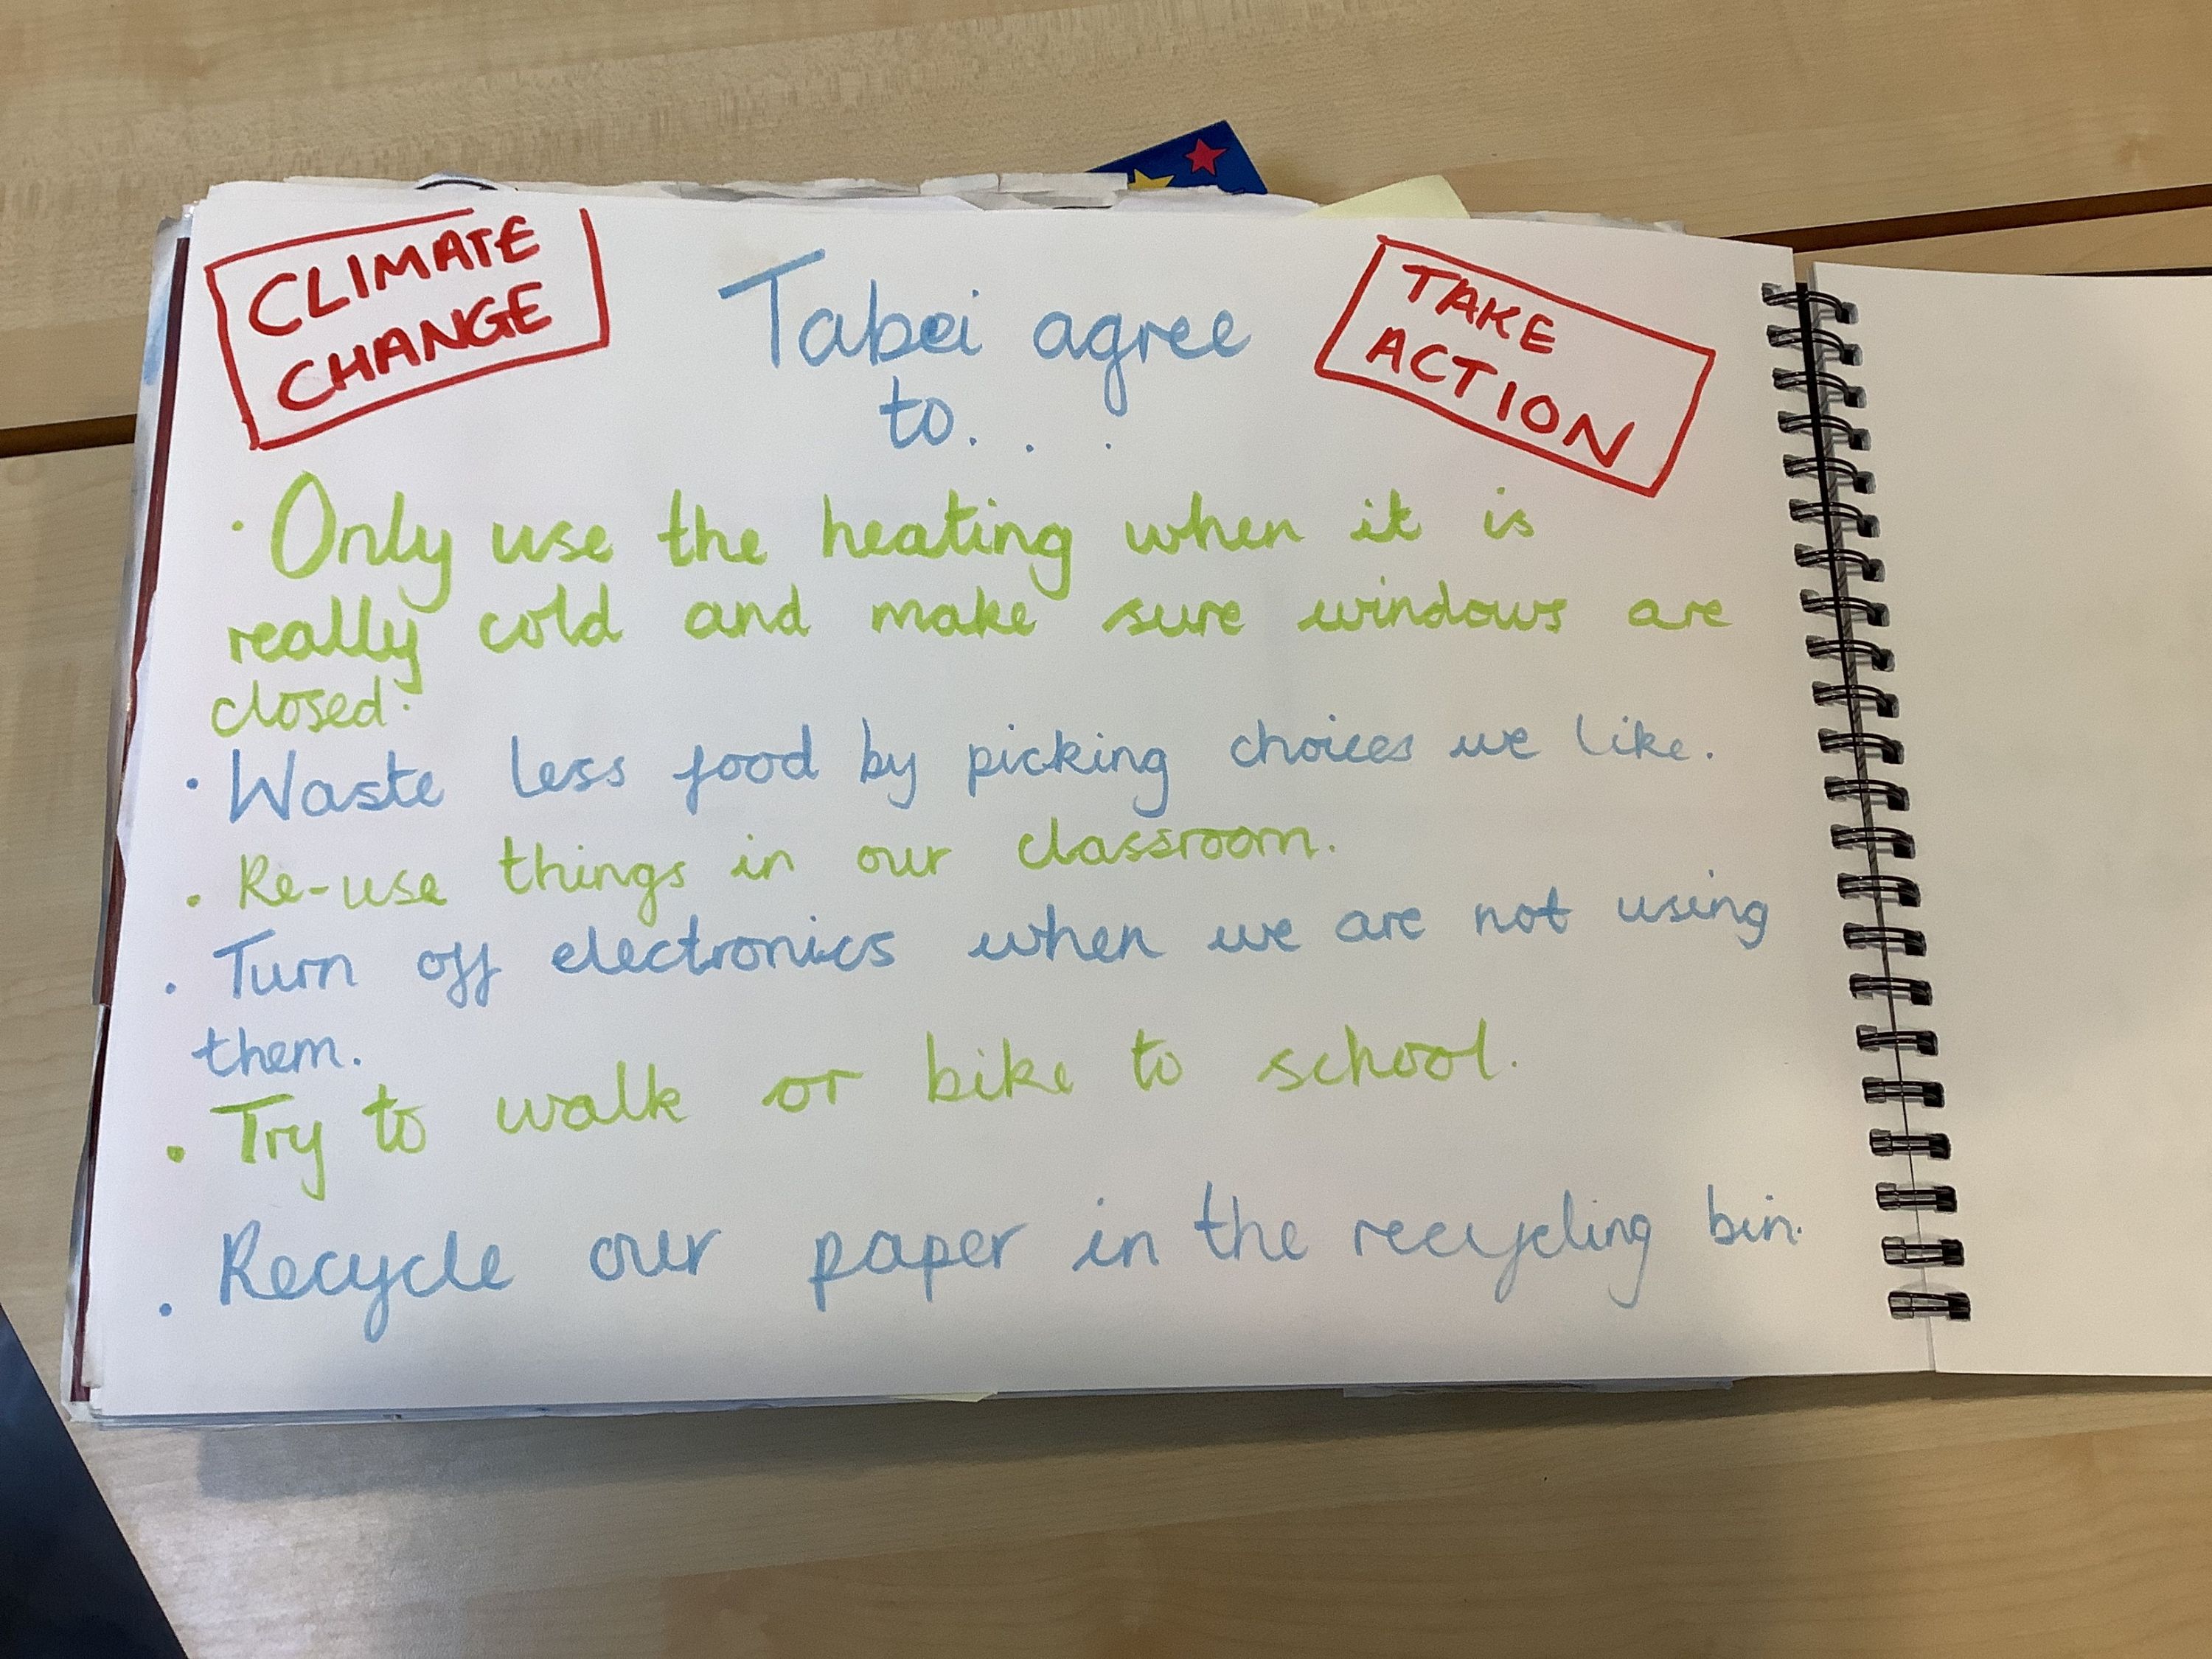 CLIMATE
CHANGE
Tabei agree
to...
TAKE
ACTION
· Only use the heating when it is
really cold and make sure windows are
closed.
· Waste less food by picking choices we like.
· Re-use things in our classroom.
· Turn off electronics when we are not using
them.
· Try to walk or bike to school.
· Recycle our paper in the recycling bin.